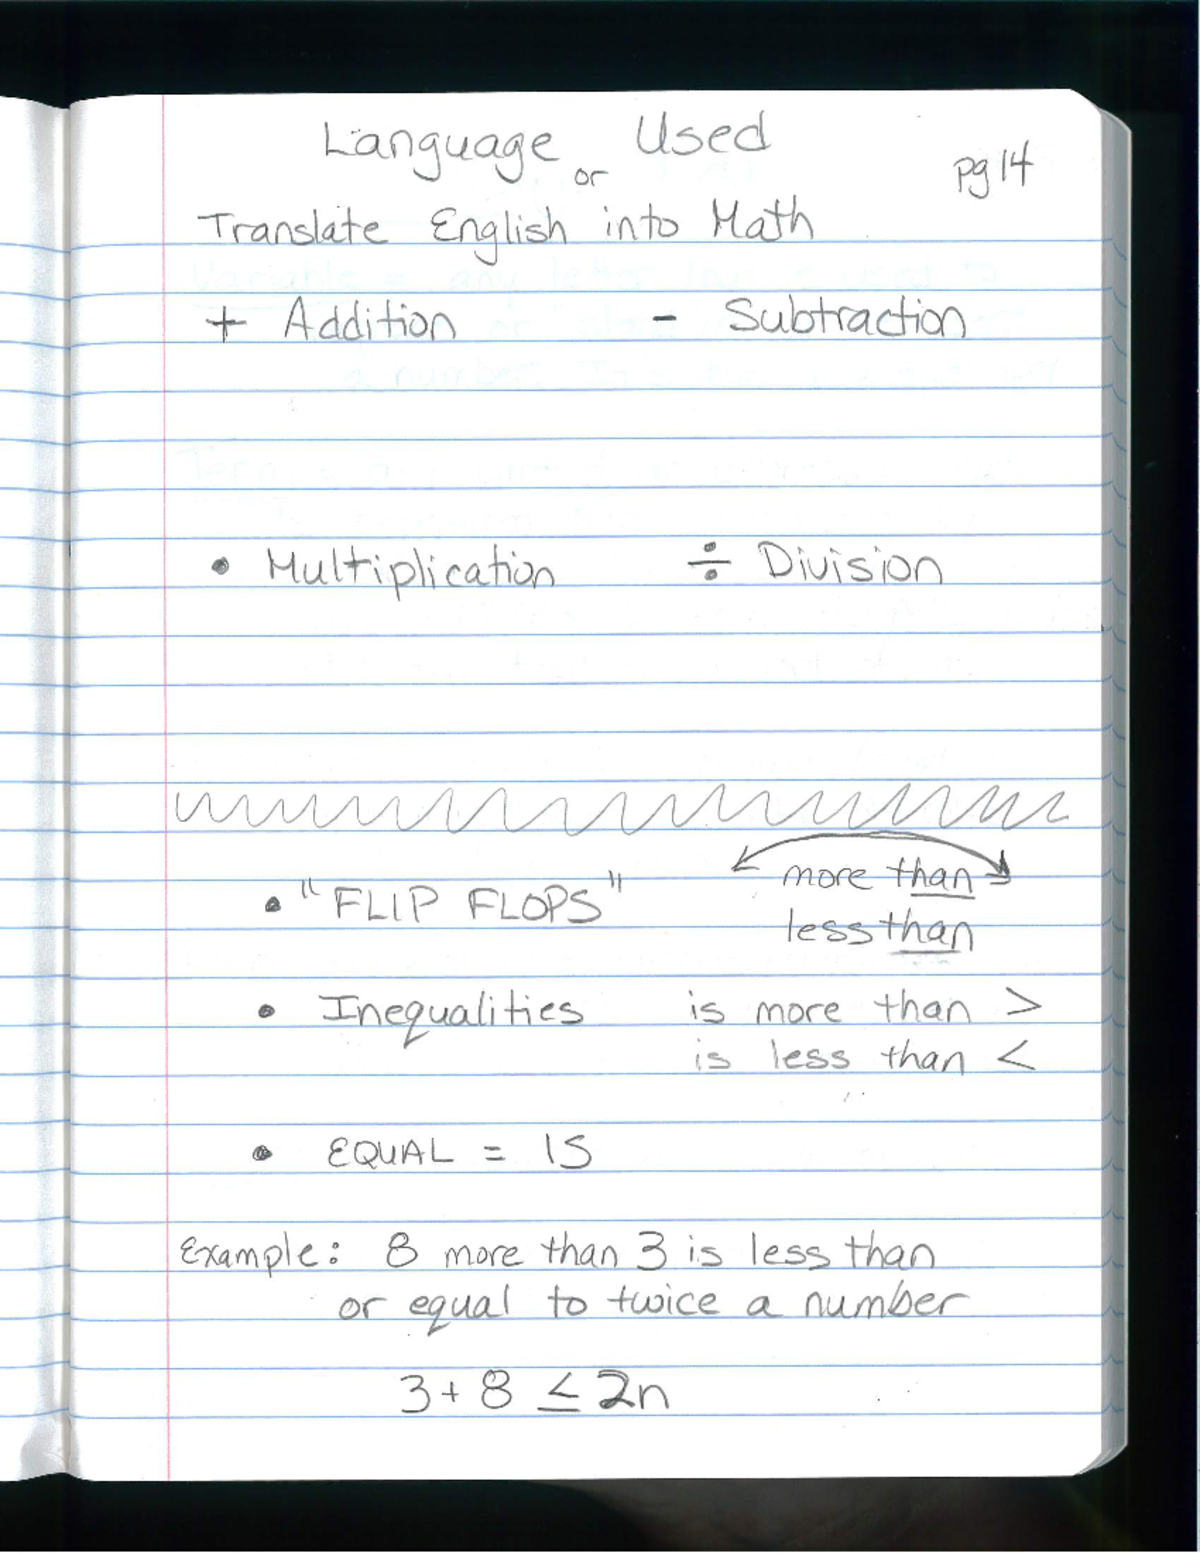 Language Used
or
pg 14
Translate English into Math
+ Addition - Subtraction
• Multiplication ÷ Division
• "FLIP FLOPS" more than
less than
• Inequalities is more than >
is less than <
• EQUAL = IS
Example: 8 more than 3 is less than
or equal to twice a number
3 + 8 ≤ 2n